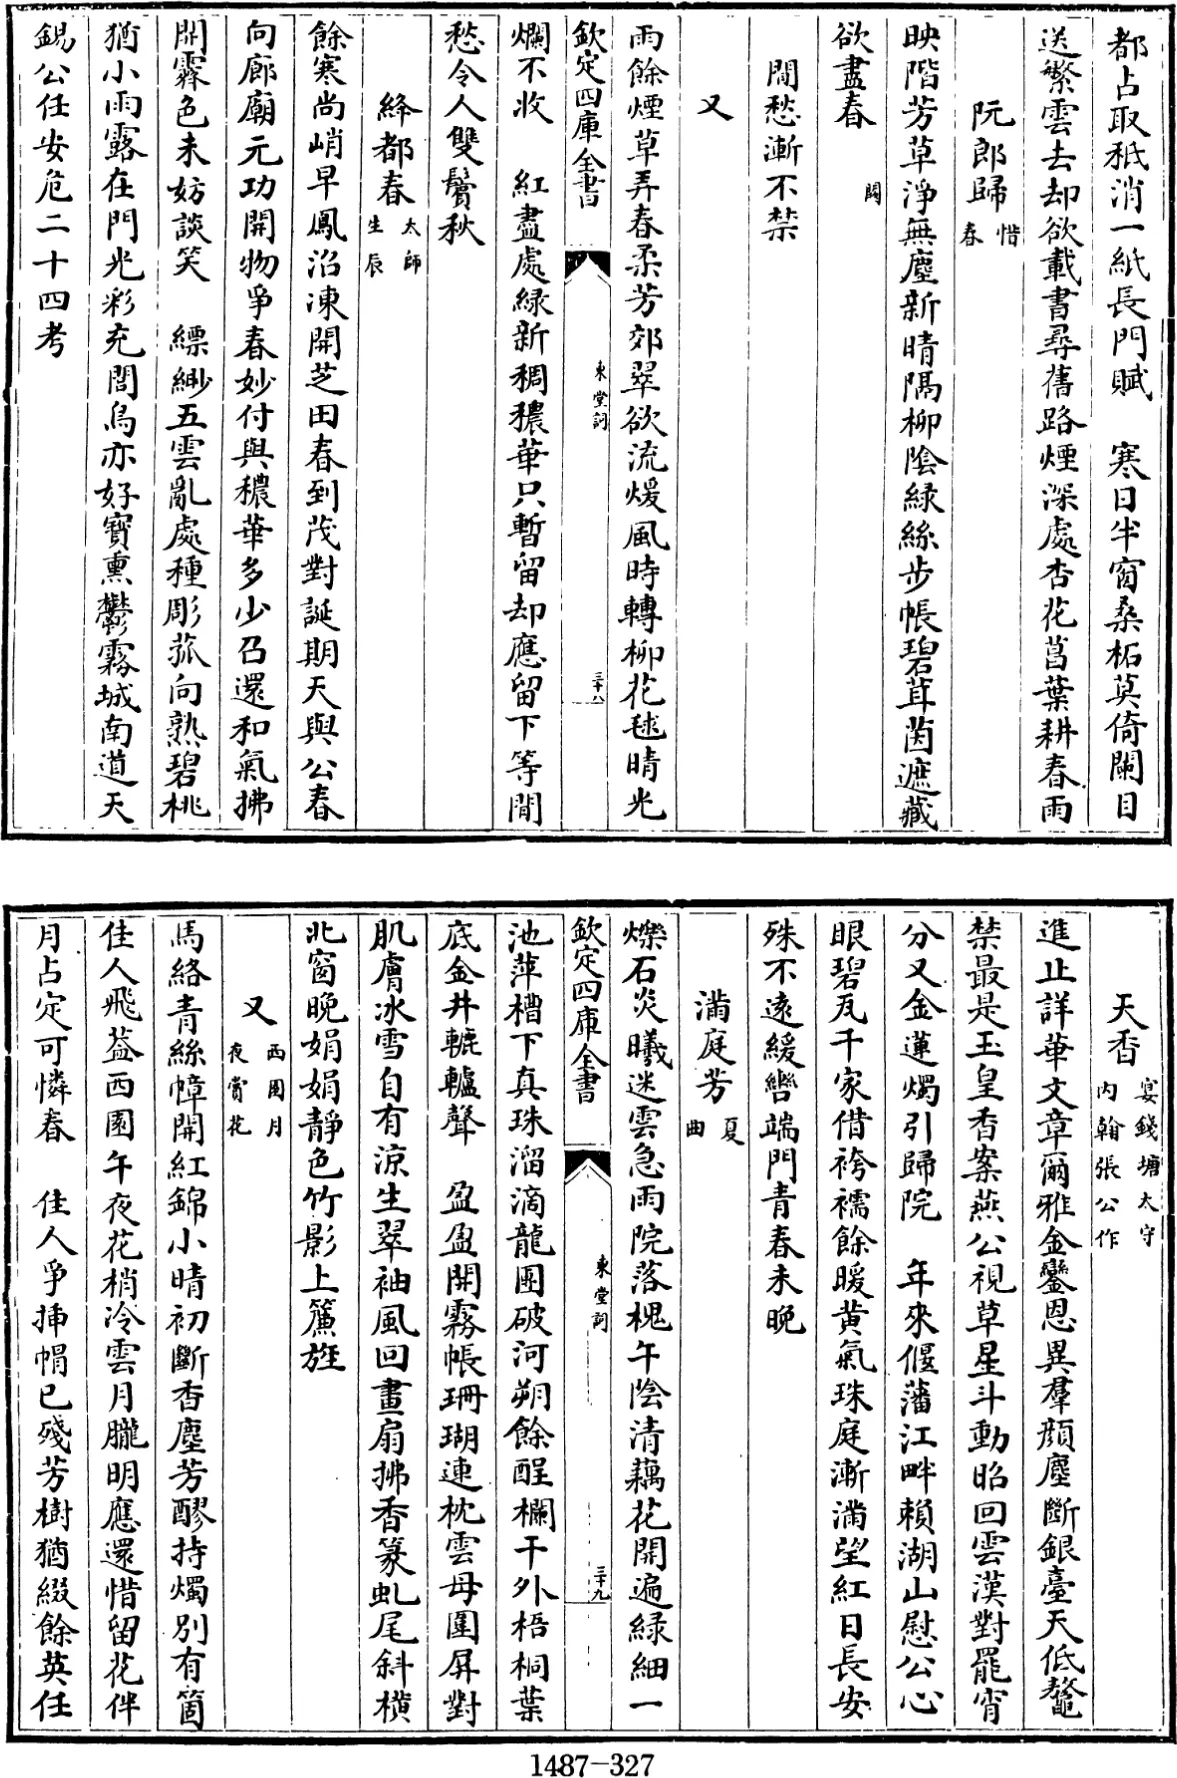 都占取秖消一紙長門賦　寒日半窗桑柘莫倚闌目
送繁雲去却欲載書尋舊路煙深處杏花菖葉耕春雨
阮郎歸惜春
映階芳草淨無塵新晴隔柳陰綠絲步帳碧茸茵遮藏
欲盡春　闕
間愁漸不禁
又
雨餘煙草弄春柔芳郊翠欲流煖風時轉柳花毬晴光
欽定四庫全書　東堂詞　三十八
爛不收　紅盡處綠新稠穠華只暫留却應留下等閒
愁令人雙鬢秋
絳都春太師生辰
餘寒尚峭早鳳沼凍開芝田春到茂對誕期天與公春
向廊廟元功開物爭春妙付與穠華多少召還和氣拂
開霽色未妨談笑　縹緲五雲亂處種彫菰向熟碧桃
猶小雨露在門光彩充閭烏亦好寶熏鬱霧城南道天
錫公任安危二十四考
天香宴錢塘太守內翰張公作
進止詳華文章爾雅金鑾恩異羣顏塵斷銀臺天低鼇
禁最是玉皇香案燕公視草星斗動昭回雲漢對罷宵
分又金蓮燭引歸院　年來偃藩江畔賴湖山慰公心
眼碧瓦千家借袴襦餘暖黃氣珠庭漸滿望紅日長安
殊不遠緩轡端門青春未晚
滿庭芳夏曲
爍石炎曦迷雲急雨院落槐午陰清藕花開遍綠細一
欽定四庫全書　東堂詞　三十九
池萍槽下真珠溜滴龍團破河朔餘酲欄干外梧桐葉
底金井轆轤聲　盈盈開霧帳珊瑚連枕雲母圍屏對
肌膚冰雪自有涼生翠袖風回畫扇拂香篆虬尾斜橫
北窗晚娟娟靜色竹影上簾旌
又西園月夜賞花
馬絡青絲幛開紅錦小晴初斷香塵芳醪持燭別有箇
佳人飛蓋西園午夜花梢冷雲月朧明應還惜留花伴
月占定可憐春　佳人爭揷帽已殘芳樹猶綴餘英任
1487-327